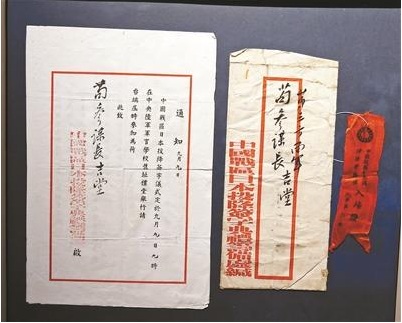 通知
中國戰區日本投降簽字儀式定於九月九日九時
在中央陸軍軍官學校舊址禮堂舉行請
台端屆時參加為荷
此致
苟參謀長吉堂
中國戰區日本投降簽字典禮籌備處 啟
苟參謀長吉堂
中國戰區日本投降簽字典禮籌備處緘
入場證